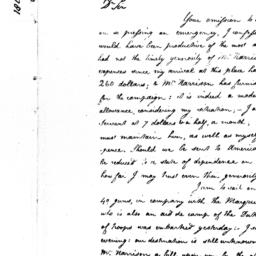 Dr Sir
Your omission to
on so pressing an emergency, I confess
would have been productive of the most
had not the timely generosity of Mr Harrison
expences since my arrival at this place ha
260 dollars; & Mr Harrison has furnis
for the campaign; it is indeed a mode
allowance considering my situation,
servant at 7 dollars & a half, a month,
must maintain him, as well as mysel
pence. Should we be sent to America
be reduced to a state of dependance on
how far I may trust even their generosity
I am to sail on
40 guns, in company with the Marquis
who is also an aid de camp of the
of troops was embarked yesterday:
evening: our destination is still unknown
Mr Harrison a bill upon